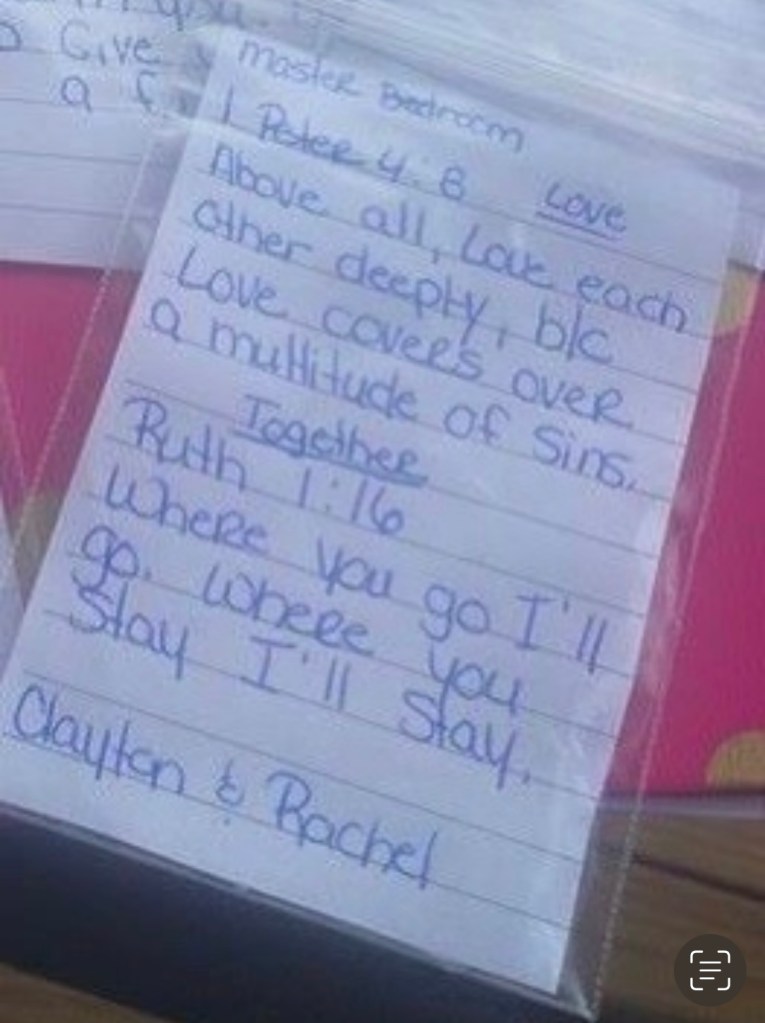 you.
Give
a f
Master Bedroom
1 Peter 4:8 Love
Above all, Love each
other deeply, b/c
Love covers over
a multitude of Sins.
Together
Ruth 1:16
Where you go I'll
go. Where you
Stay I'll Stay.
Clayton & Rachel